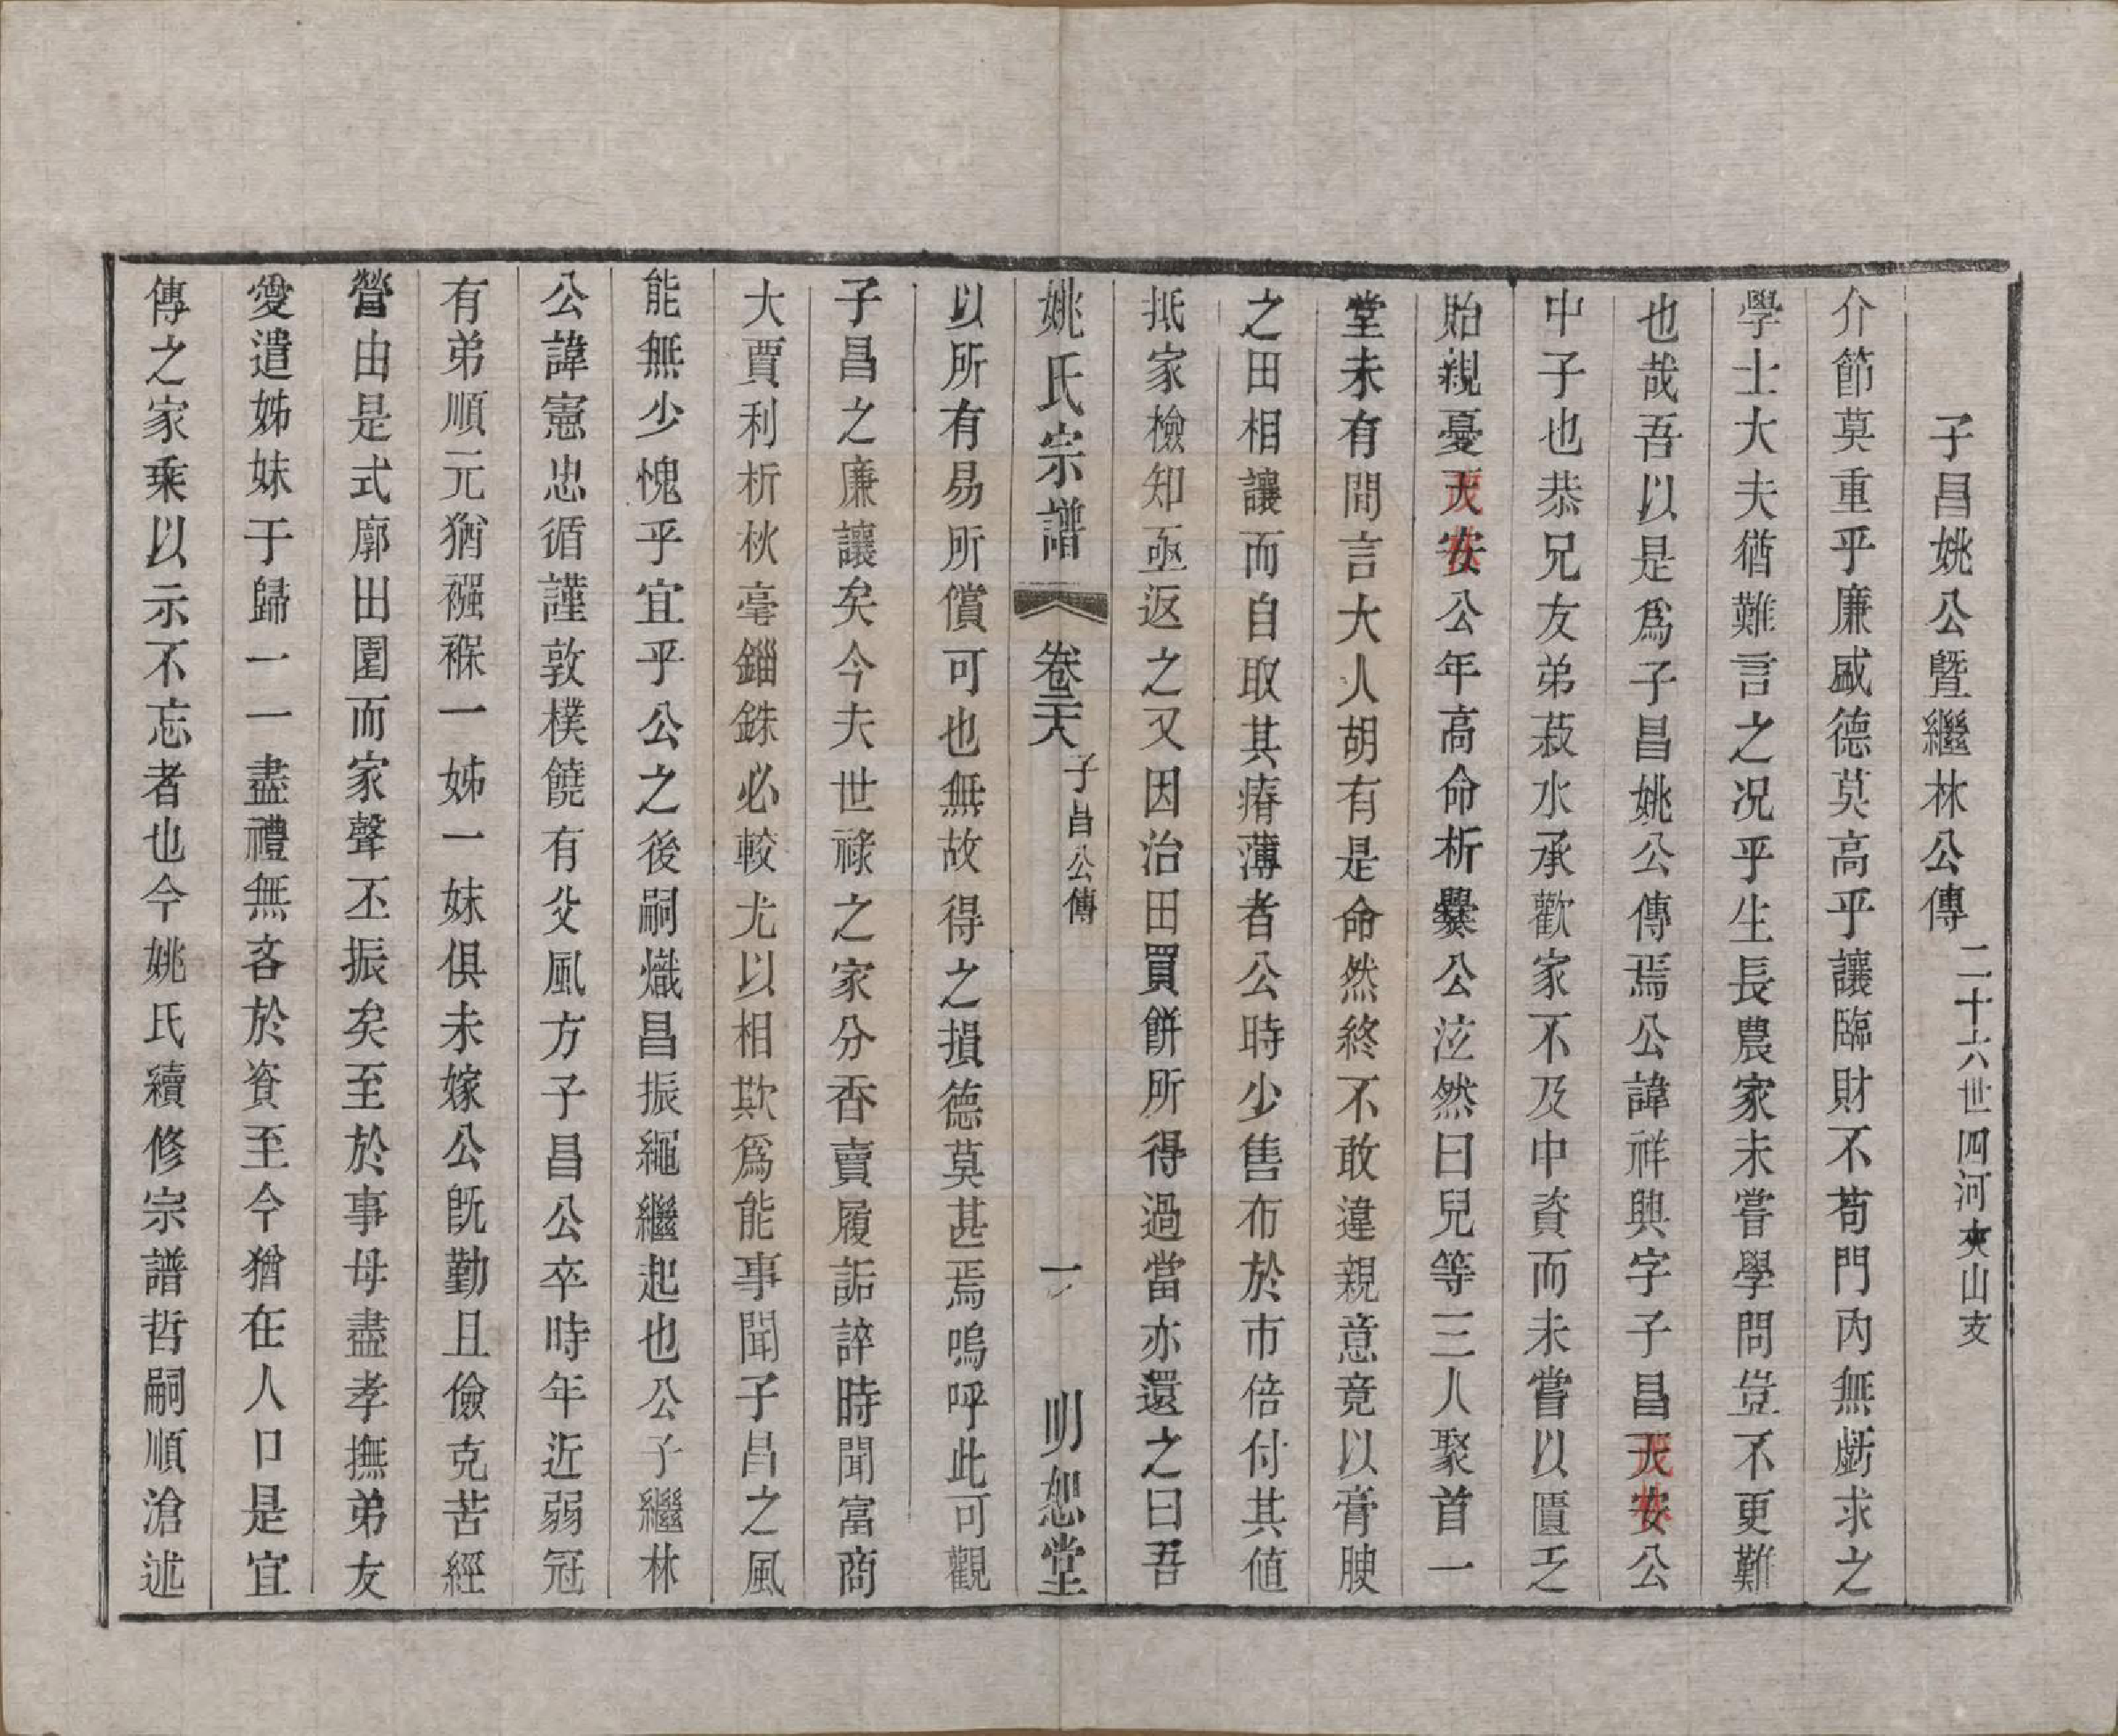 子昌姚公暨繼林公傳二十六世四河夾山支
介節莫重乎廉盛德莫高乎讓臨財不苟門內無虧求之
學士大夫猶難言之况乎生長農家未嘗學問豈不更難
也哉吾以是爲子昌姚公傳焉公諱祥興字子昌天安公
中子也恭兄友弟菽水承歡家不及中資而未嘗以匱乏
貽親憂天安公年高命析爨公泣然曰兒等三人聚首一
堂未有間言大人胡有是命然終不敢違親意竟以膏腴
之田相讓而自取其瘠薄者公時少售布於市倍付其値
抵家檢知亟返之又因治田買餅所得過當亦還之曰吾
姚氏宗譜 卷二六 子昌公傳 一 明恕堂
以所有易所償可也無故得之損德莫甚焉嗚呼此可觀
子昌之廉讓矣今夫世祿之家分香賣履詬誶時聞富商
大賈利析秋毫錙銖必較尤以相欺爲能事聞子昌之風
能無少愧乎宜乎公之後嗣熾昌振繩繼起也公子繼林
公諱憲忠循謹敦樸饒有父風方子昌公卒時年近弱冠
有弟順元猶襁褓一姊一妹俱未嫁公旣勤且儉克苦經
營由是式廓田園而家聲丕振矣至於事母盡孝撫弟友
愛遣姊妹于歸一一盡禮無吝於資至今猶在人口是宜
傳之家乘以示不忘者也今姚氏續修宗譜哲嗣順滄述